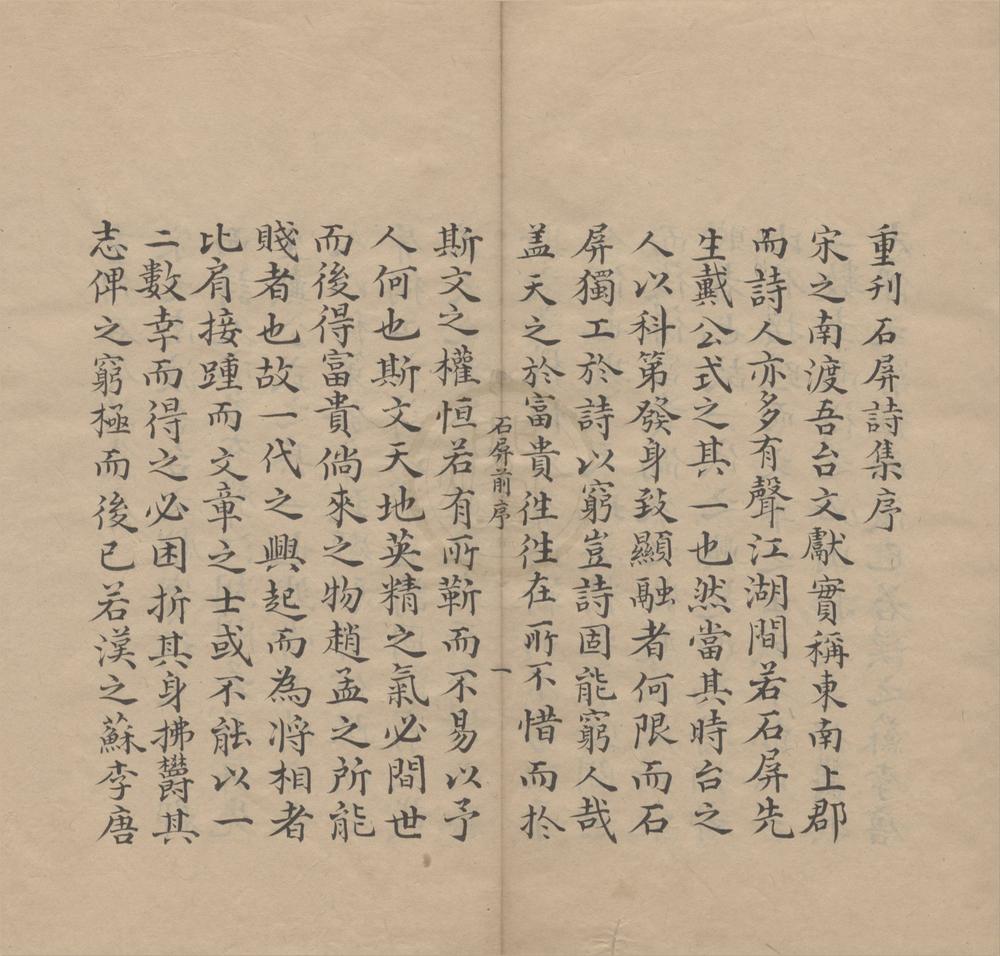 重刊石屏詩集序
宋之南渡吾台文獻實稱東南上郡
而詩人亦多有聲江湖間若石屏先
生戴公式之其一也然當其時台之
人以科第發身致顯融者何限而石
屏獨工於詩以窮豈詩固能窮人哉
盖天之於富貴徃徃在所不惜而於
石屏前序
一
斯文之權恒若有所靳而不易以予
人何也斯文天地英精之氣必間世
而後得富貴倘來之物趙孟之所能
賤者也故一代之興起而為將相者
比肩接踵而文章之士或不能以一
二數幸而得之必困折其身拂欝其
志俾之窮極而後已若漢之蘇李唐